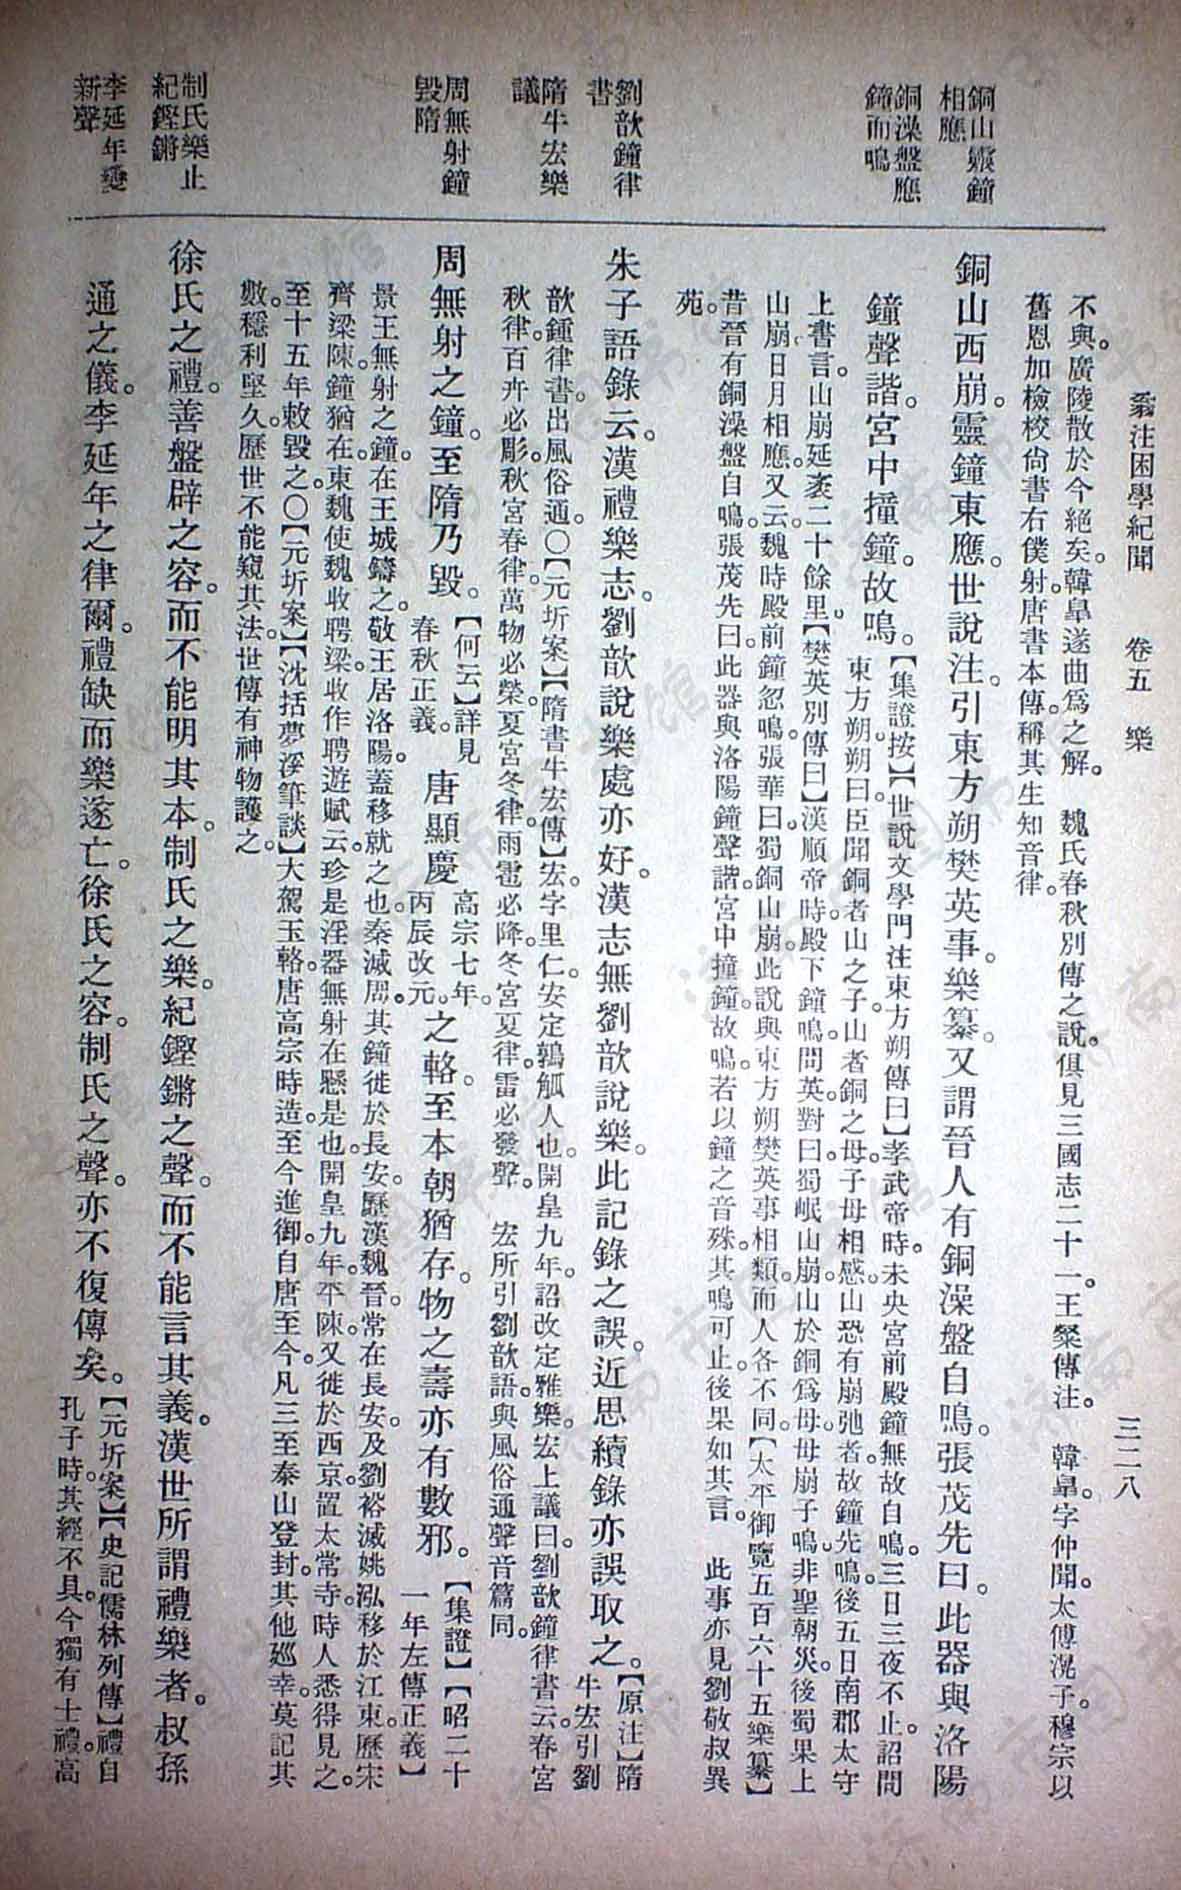 翁注困學紀聞　卷五　樂　三二八
不與。廣陵散於今絕矣。韓臯遂曲爲之解。　魏氏春秋別傳之說。俱見三國志二十一。王粲傳注。　韓臯。字仲聞。太傅滉子。穆宗以
舊恩加檢校尙書右僕射。唐書本傳。稱其生知音律。
銅山靈鐘
相應
銅山西崩。靈鐘東應。世說注。引東方朔樊英事。樂纂。又謂晉人有銅澡盤自鳴。張茂先曰。此器與洛陽
銅澡盤應
鐘而鳴
鐘聲諧。宮中撞鐘。故鳴。
【集證按】【世說文學門注東方朔傳曰】孝武帝時。未央宮前殿鐘無故自鳴。三日三夜不止。詔問
東方朔。朔曰。臣聞銅者山之子。山者銅之母。子母相感。山恐有崩弛者。故鐘先鳴。後五日南郡太守
上書言。山崩延袤二十餘里。【樊英別傳曰】漢順帝時。殿下鐘鳴。問英。對曰。蜀岷山崩。山於銅爲母。母崩子鳴。非聖朝災。後蜀果上
山崩。日月相應。又云。魏時殿前鐘忽鳴。張華曰。蜀銅山崩。此說與東方朔樊英事相類。而人各不同。【太平御覽五百六十五樂纂】
昔晉有銅澡盤自鳴。張茂先曰。此器與洛陽鐘聲諧。宮中撞鐘。故鳴。若以鐘之音殊。其鳴可止。後果如其言。　此事亦見劉敬叔異
苑。
劉歆鐘律
書
朱子語錄云。漢禮樂志。劉歆說樂處亦好。漢志無劉歆說樂。此記錄之誤。近思續錄亦誤取之。
【原注】隋
牛宏引劉
隋牛宏樂
議
歆鍾律書。出風俗通。〇【元圻案】【隋書牛宏傳】宏。字里仁。安定鶉觚人也。開皇九年。詔改定雅樂。宏上議曰。劉歆鐘律書云。春宮
秋律。百卉必彫。秋宮春律。萬物必榮。夏宮冬律。雨雹必降。冬宮夏律。雷必發聲。　宏所引劉歆語。與風俗通聲音篇同。
周無射鐘
毀隋
周無射之鐘。至隋乃毀。
【何云】詳見
春秋正義。
唐顯慶
高宗七年。
丙辰改元。
之輅。至本朝猶存。物之壽亦有數邪。
【集證】【昭二十
一年左傳正義】
景王無射之鐘。在王城鑄之。敬王居洛陽。蓋移就之也。秦滅周。其鐘徙於長安。歷漢魏晉。常在長安。及劉裕滅姚泓。移於江東。歷宋
齊梁陳。鐘猶在。東魏使魏收聘梁。收作聘遊賦云。珍是淫器。無射在懸是也。開皇九年。平陳。又徙於西京。置太常寺。時人悉得見之。
至十五年敕毀之。〇【元圻案】【沈括夢溪筆談】大駕玉輅。唐高宗時造。至今進御。自唐至今。凡三至泰山登封。其他巡幸。莫記其
數。穩利堅久。歷世不能窺其法。世傳有神物護之。
制氏樂止
紀鏗鏘
徐氏之禮。善盤辟之容。而不能明其本。制氏之樂。紀鏗鏘之聲。而不能言其義。漢世所謂禮樂者。叔孫
李延年變
新聲
通之儀。李延年之律爾。禮缺而樂遂亡。徐氏之容。制氏之聲。亦不復傳矣。
【元圻案】【史記儒林列傳】禮自
孔子時。其經不具。今獨有士禮。高